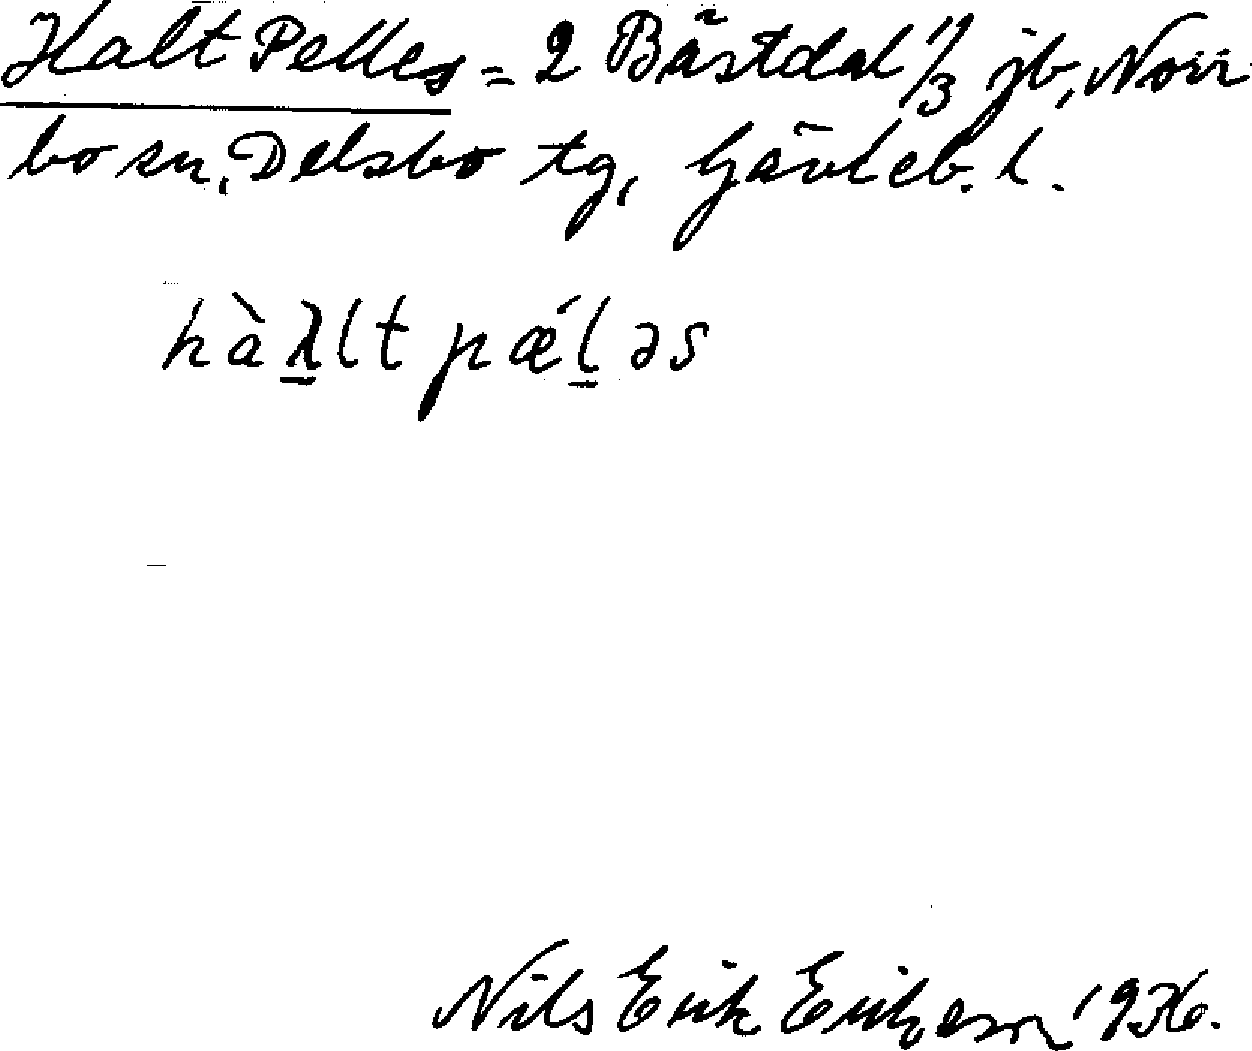 Halt Pelles = 2 Bästdal 1/3 jb, Norr
bo sn, Delsbo tg, Gävleb. l.
hàλ̲lt pǽl̲əs
Nils Erik Erikson 1936.